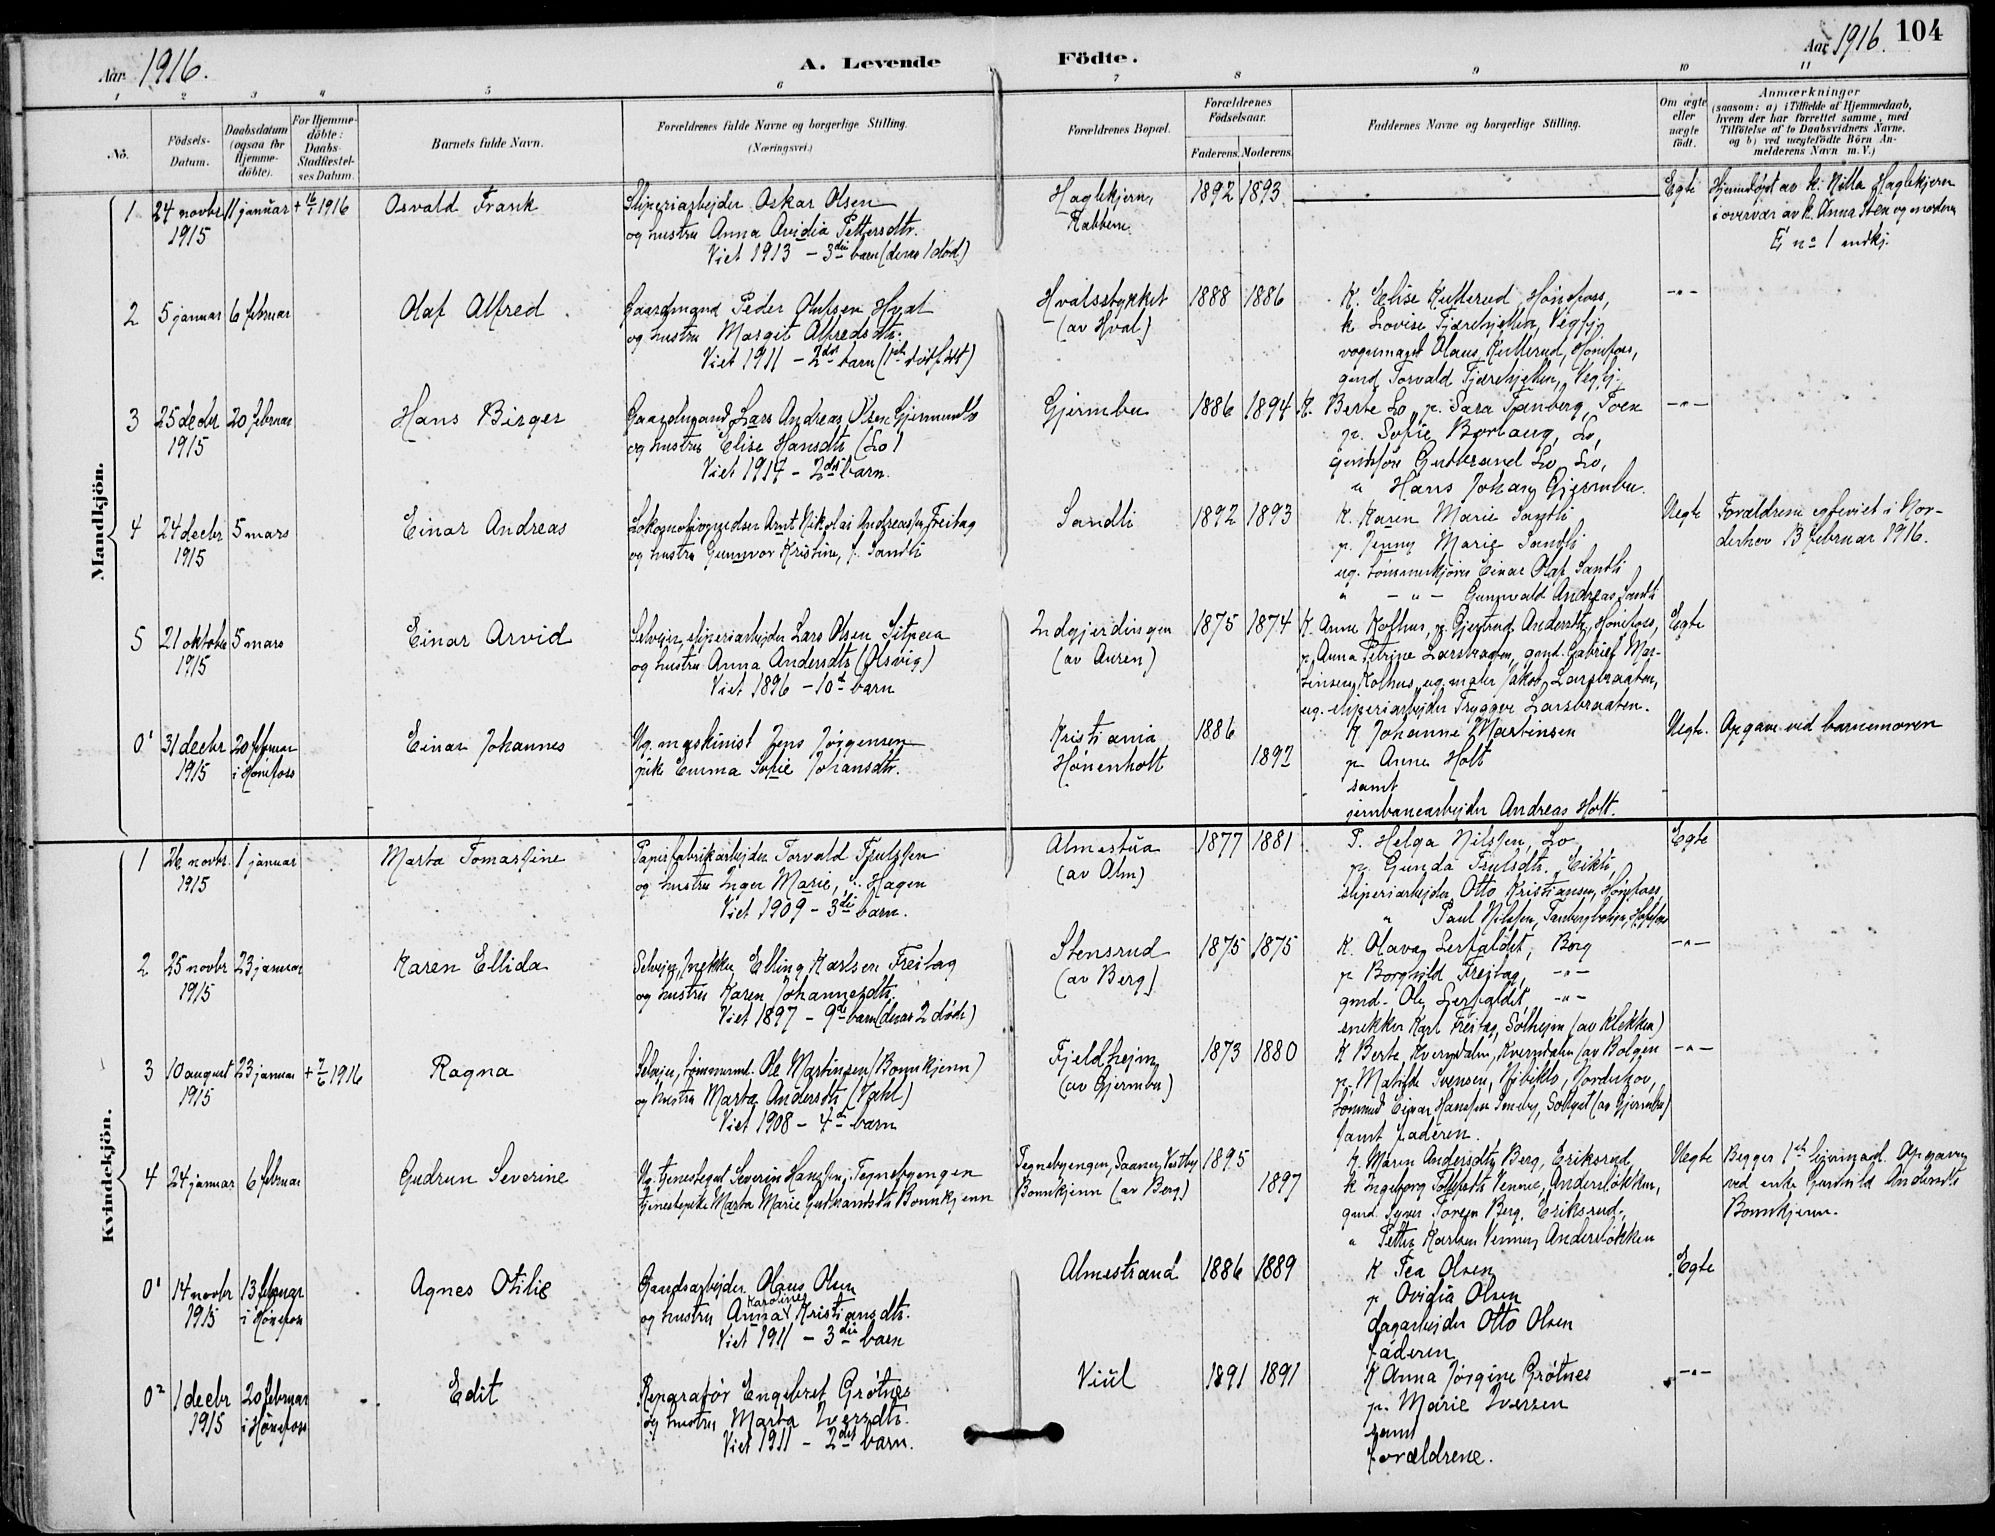 Aar 1916.
A. Levende Födte.
Aar 1916. 104
1 2 3 4 5 6 7 8 9 10 11
No.
Födsels-Datum.
Daabsdatum (ogsaa for Hjemme-döbte).
For Hjemme-döbte: Daabs-Stadfæstel-ses Datum.
Barnets fulde Navn.
Forældrenes fulde Navne og borgerlige Stilling.
(Næringsvei.)
Forældrenes Bopæl.
Forældrenes Födselsaar.
Faderens. Moderens.
Faddernes Navne og borgerlige Stilling.
Om ægte eller uægte födt.
Anmærkninger
(saasom: a) i Tilfælde af Hjemmedaab, hvem der har forrettet samme, med Tilföielse af to Daabsvidners Navne, og b) ved uægtefödte Börn Anmelderens Navn m. V.)
Mandkjön.
1 24 novbr 1915 11 januar + 16/1 1916 Osvald Frank
Sliperiarbejder Oskar Olsen
og hustru Anna Ovidia Pettersdtr.
Viet 1913 - 3die barn (deraf 1 död)
Haglekjern, Rabben
1892 1893
Egte
Hjemmedöpt av k. Hilla Haglekjern
i overvær av k. Anna Sten og moderen
E no 1 mdkj.
2 5 januar 6 februar Olaf Alfred
Gaardmand Peder Olufsen Hval
og hustru Margit Alfredsdtr.
Viet 1911 - 2det barn (1ste dödfödt)
Hvalsstykket (av Hval)
1888 1886
K. Elise Kullerud, Hönefoss,
k. Lovise Tjærehjellen, Vegsj.
vognmand Olaus Kullerud, Hönefoss,
gmd Torvald Tjærehjellen, Vegsj.
-"-
3 25 decbr 1915 20 februar Hans Birger
Gaardmand Lars Andreas Olsen Gjermundbo
og hustru Elise Hansdtr. (Lo)
Viet 1914 - 2det barn.
Gjermbu
1886 1894
K. Berte Lo, p. Sara Tanberg, Toen
p. Sofie Borlaug, Lo,
gmdsön Gulbrand Lo, Lo,
" Hans Johan Gjermbu.
-"-
4 24 decbr 1915 5 mars Einar Andreas
Lokomotivpudser Arnt Nikolai Andreassen Freitag
og hustru Gunnvor Kristine, f. Sandli
Sandli
1892 1893
K. Karen Marie Sandli
p. Jenny Marie Sandli
ug. tömmerkjörer Einar Olaf Sandli
" - " - Gunnvald Andreas Sandli
Uegte
Forældrene egteviet i Nor-
derhov 13 februar 1916.
5 21 oktober 1915 5 mars Einar Arvid
Selveier, sliperiarbejder Lars Olsen
og hustru Anna Andersdtr (Olsvig)
Viet 1896 - 10de barn
Indgjerdingen (av Auren)
1875 1874
K. Anne Kolhus, p. Gjertrud Andersdtr., Hönefoss,
p. Anna Petrine Larsbraaten, gmd. Gabriel Mar-
tinsen, Kolhus, ug. maler Jakob Larsbraaten,
ug. sliperiarbejder Trygve Larsbraaten.
Egte
0¹ 31 decbr 1915 20 februar i Hönefoss Einar Johannes
Ug. maskinist Jens Jörgensen
pike Emma Sofie Johansdtr.
Kristiania
Hönenholt
1886
1892
K Johanne Martinsen
p Anne Holt
samt
jernbanearbejder Andreas Holt.
Uegte.
Opgave ved barnemoren
Kvindekjön.
1 26 novbr. 1915 1 januar Marta Tomassine
Papirfabrikarbejder Torvald Trulssen
og hustru Inger Marie, f. Hagen
Viet 1909 - 3die barn.
Almestua (av Alm)
1877 1881
P. Helga Nilssen, Lo
p. Gunda Trulsdtr., Eikli,
sliperiarbejder Otto Kristiansen, Hönefoss,
" Paul Nilssen,
Egte
2 25 novbr 1915 23 januar Karen Ellida
Selveier, snekker Elling Karlsen Freitag
og hustru Karen Johannesdtr.
Viet 1897 - 9de barn (deraf 2 döde)
Stensrud (av Berg)
1875 1875
K. Olava Lerfaldet, Borg
p Borghild Freitag, -"-
gmd. Ole Lerfaldet, -"-
snekker Karl Freitag, Solhejm (av Klekken)
-"-
3 10 august 1915 23 januar + 7/6 1916 Ragna
Selveier, tömmermd. Ole Martinsen (Bonnkjenn)
og hustru Marta Andersdtr. (Vahl)
Viet 1908 - 4de barn
Fjeldhejm (av Gjermbu)
1873 1880
K Berte Kverndalen, Kverndalen (av Bolgen
p. Matilde Svensen, Nibiklo, Norderhov,
tömmermd Einar Hanssen Smeby, Soltget (av Gjermbu)
samt faderen.
-"-
4 24 januar 6 februar Gudrun Severine
Ug. tjenestegut Severin Hanssen, Tegnebyengen
tjenestepike Marta Marie Gulbrandsdtr Bonnkjenn
Tegnebyengen, Saaner, Vestby
Bonnkjenn (av Berg)
1895
1897
K. Maren Andersdtr Berg, Eriksrud,
k. Ingeborg Vennu, Anderslökken,
gmd. Syver Toresen Berg, Eriksrud,
" Petter Karlsen Vennu, Anderslökken
Uegte
Begges 1ste leiermaal. Opgaven
ved enke Gunhild Andersdtr
Bonnkjenn.
0¹ 14 novbr 1915 13 februar i Hönefoss Agnes Otilie
Gaardsarbejder Olaus Olsen
og hustru Anna Karoline Kristiansdtr.
Viet 1911 - 3die barn
Almestrand
1886 1889
K Tea Olsen
p Ovidia Olsen
dagarbejder Otto Olsen
faderen
Egte
0² 1 decbr 1915 20 februar i Hönefoss Edit
Reparatör Engebret Grötnes
og hustru Marta Iversdtr.
Viet 1911 - 2det barn.
Viul
1891 1891
K Anna Jörgine Grötnes
p. Marie Iversen
samt
forældrene.
-"-